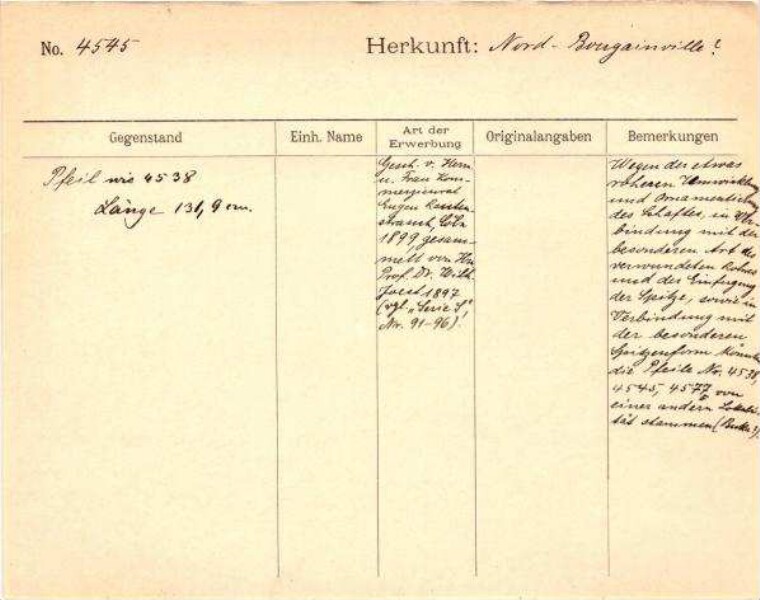 No. 4545
Herkunft: Nord-Bougainville?
Gegenstand
Einh. Name
Art der
Erwerbung
Originalangaben
Bemerkungen
Pfeil wie 4538
Länge 131,9 cm.
Gesch. v. Herrn
u. Frau Kom-
merzienrat
Eugen Rauten-
strauch, Cöln
1899, gesam-
melt von Hn
Prof. Dr. Wilh.
Joest 1897
(vgl. „Serie S",
Nr. 91-96).
Wegen der etwas
roheren Umwicklung
und Ornamentierung
des Schaftes, in Ver-
bindung mit der
besonderen Art des
verwundeten Rohres
und der Einfügung
der Spitze, sowie in
Verbindung mit
der besonderen
Spitzenform könnten
die Pfeile No. 4538,
4545, 4577 von
einer andern Lokali-
tät stammen (Buka?).